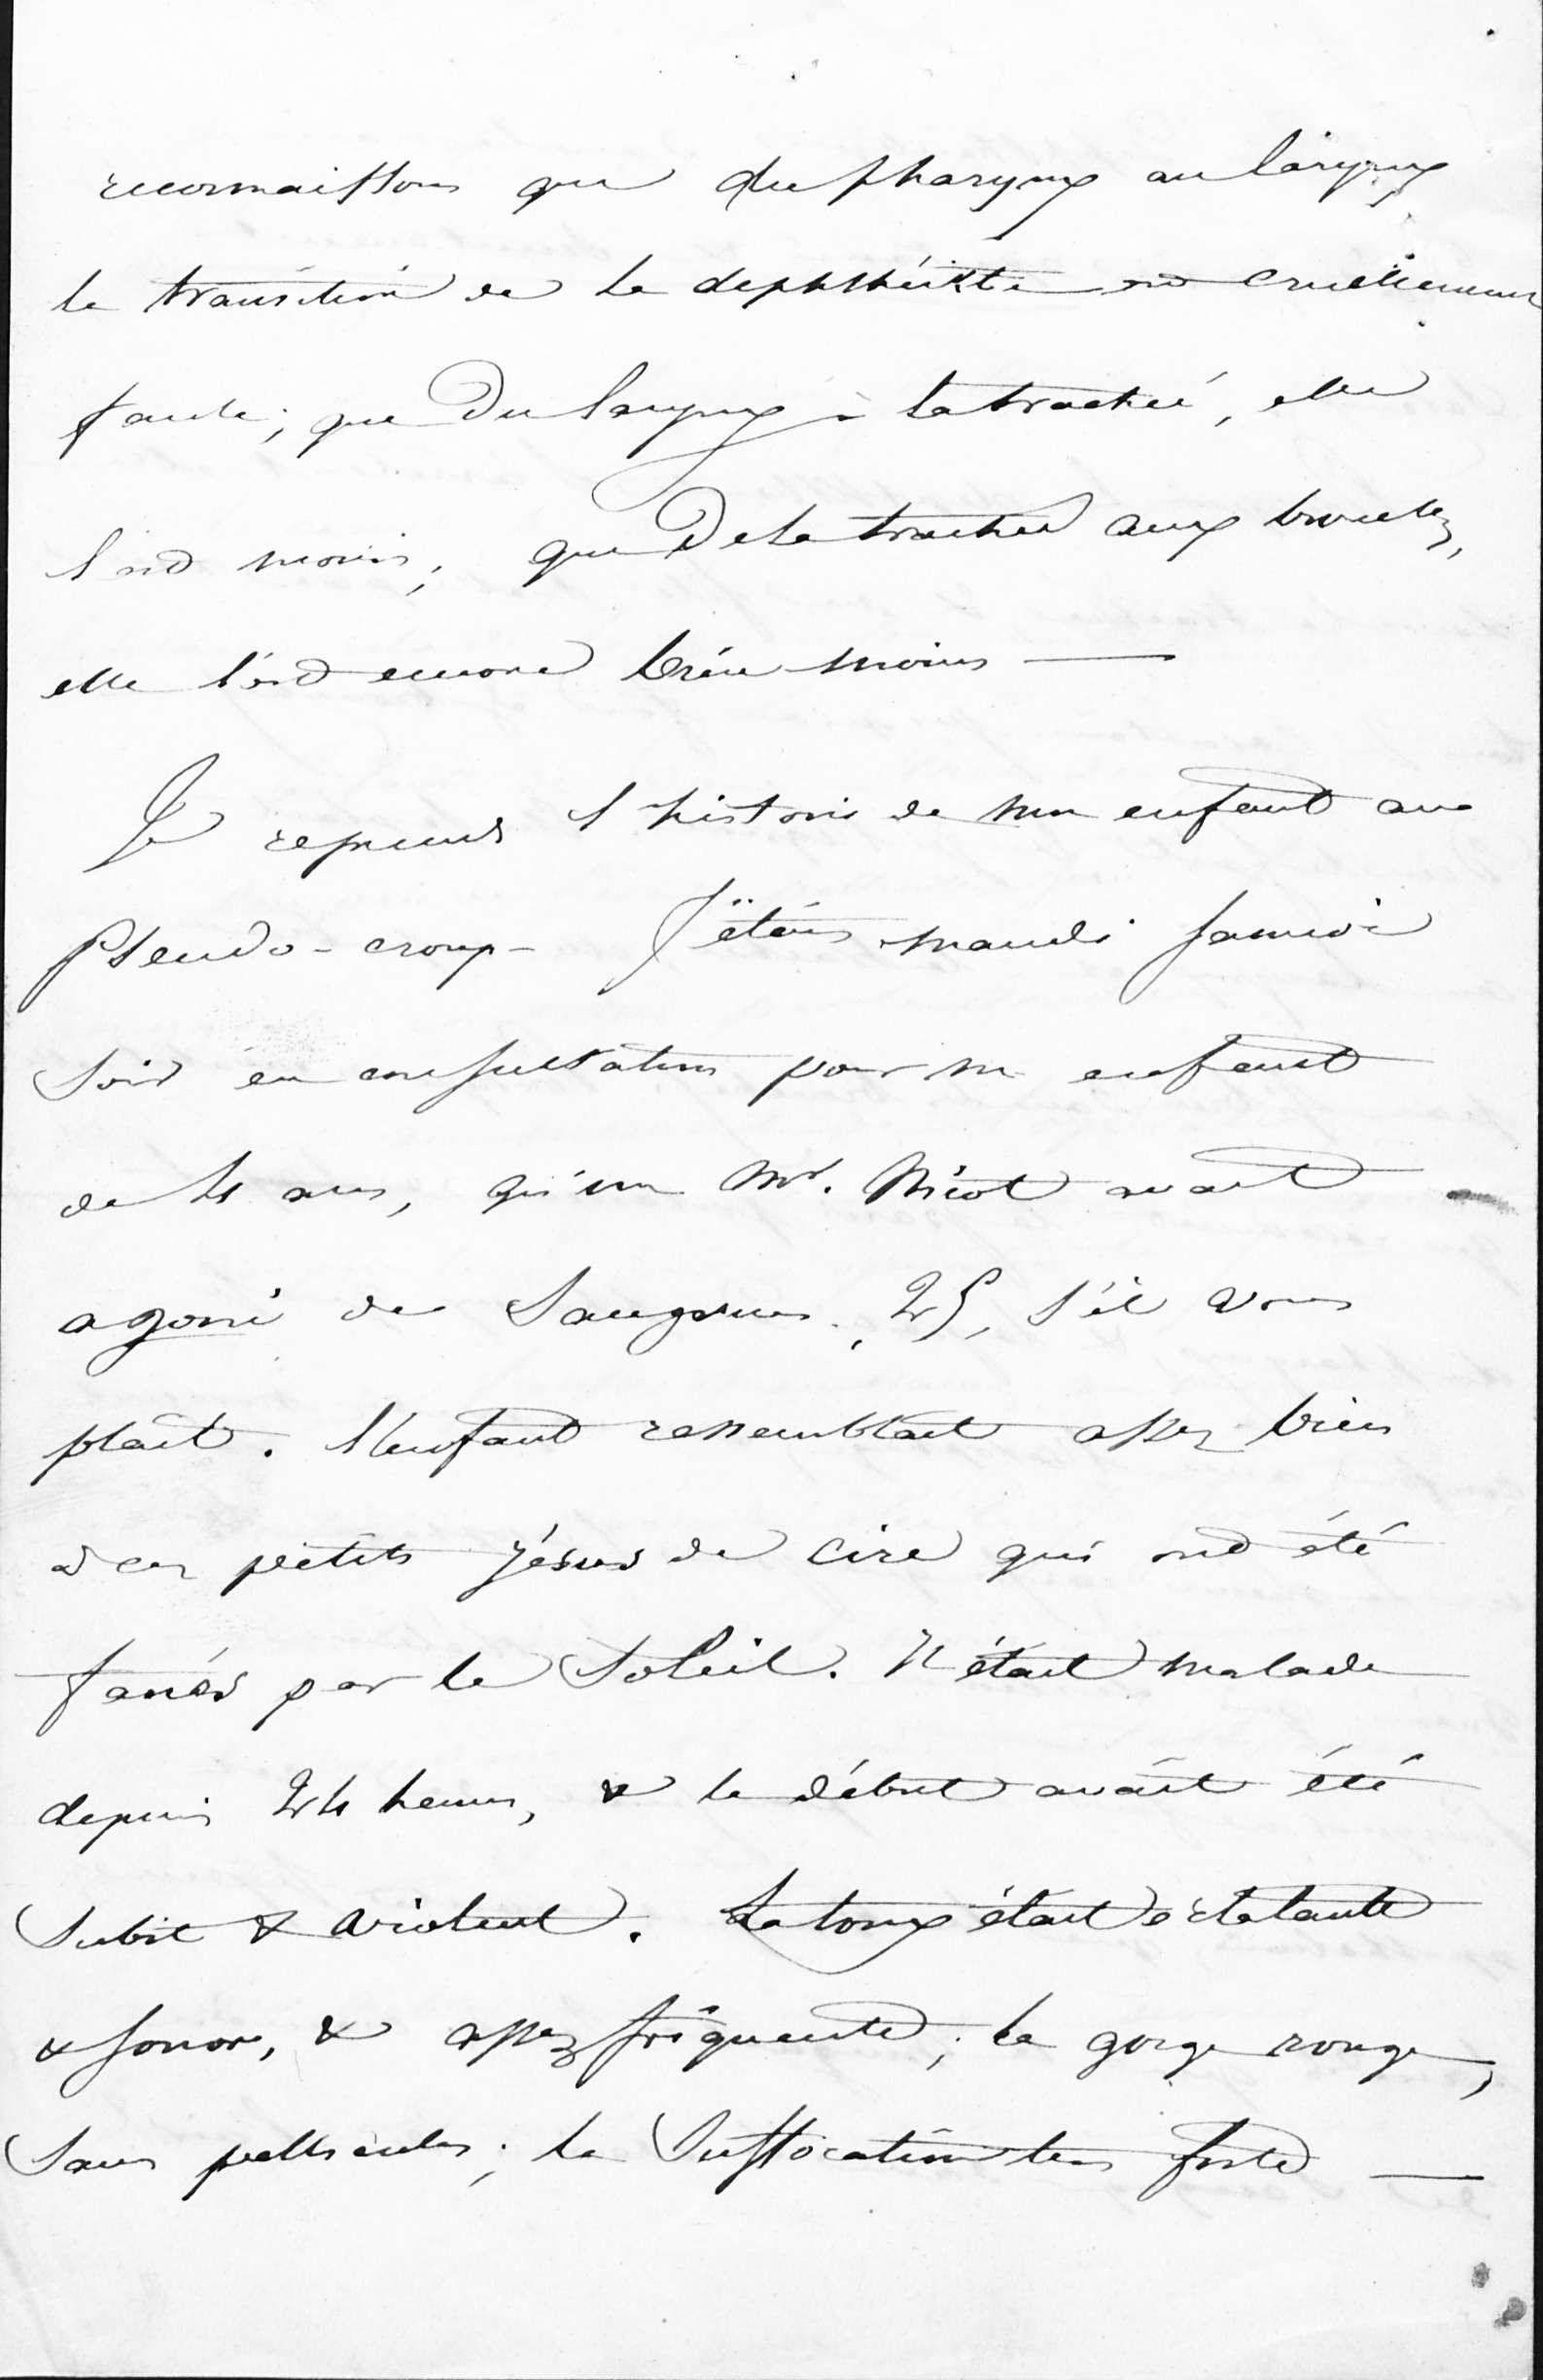 reconnaissons que du pharynx au larynx
la transition de la diphthérite est cruellement
facile; que du larynx à la trachée, elle
l'est moins; que de la trachée aux bronches,
elle l'est encore bien moins —
Je reprends l'histoire de mon enfant au
Pseudo-croup - J'étais mandé samedi
soir en consultation pour un enfant
de 4 ans, qu'un Mr. Nicot avait
agoni de Sangsues, 25, s'il vous
plait. L'enfant ressemblait assez bien
à ces petits Jésus de cire qui ont été
fanés par le Soleil. Il était malade
depuis 24 heures, & le début avait été
Subit & violent. La toux était éclatante
& sonore, & assez fréquente; la gorge rouge,
Sans pellicules; la Suffocation très forte —